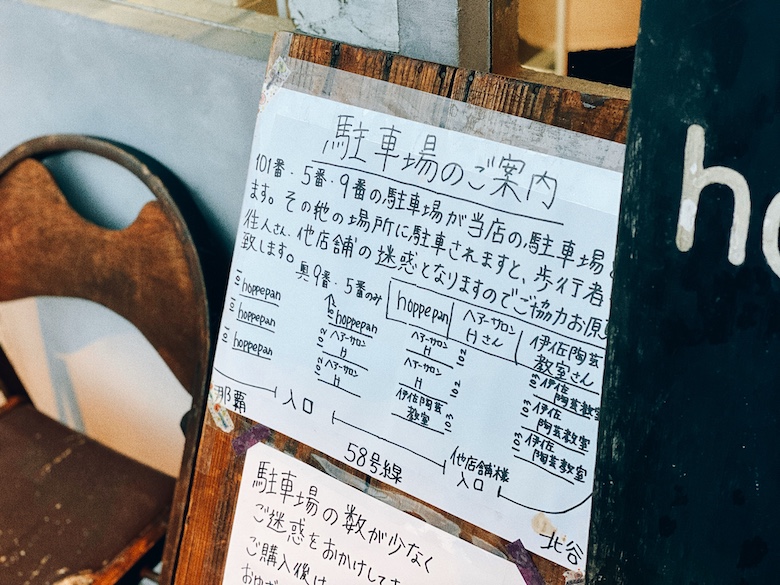 駐車場のご案内
101番・5番・9番の駐車場が当店の駐車場
ます。その他の場所に駐車されますと、歩行者
住人さん、他店舗の迷惑となりますのでご協力お願
致します。
奥9番・5番のみ
hoppepan
ヘアーサロン
Hさん
伊佐陶芸
教室さん
101 hoppepan
101 hoppepan
101 hoppepan
hoppepan
102 ヘアーサロン
H
102 ヘアーサロン
H
ヘアーサロン
H 102
ヘアーサロン
H 102
伊佐陶芸
教室 103
103 伊佐
陶芸教室
103 伊佐
陶芸教室
103 伊佐
陶芸教室
那覇
入口
58号線
他店舗様
入口
北谷
駐車場の数が少なく
ご迷惑をおかけして
ご購入後は
h